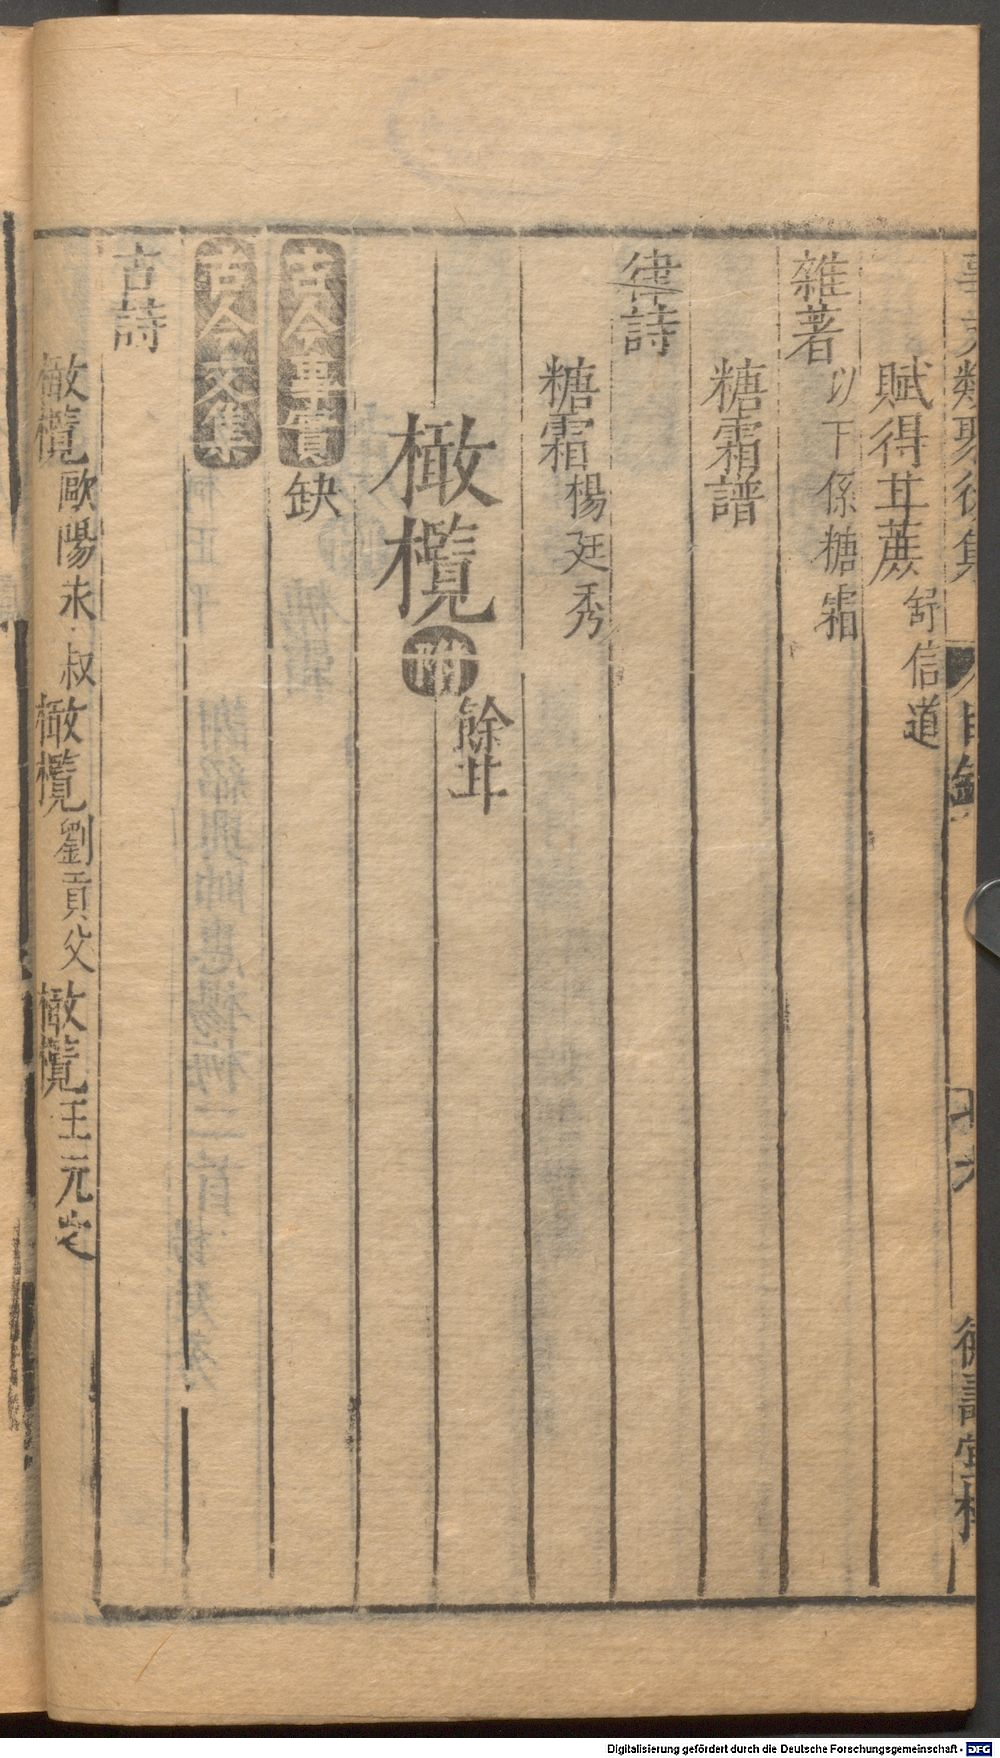 事文類聚後集 目錄 德壽堂梓
賦得甘蔗 舒信道
雜著 以下係糖霜
糖霜譜
律詩
糖霜 楊廷秀
橄欖 附 餘甘
古今事實 缺
古今文集
古詩
橄欖 歐陽永叔 橄欖 劉貢父 橄欖 王元之
Digitalisierung gefördert durch die Deutsche Forschungsgemeinschaft - DFG